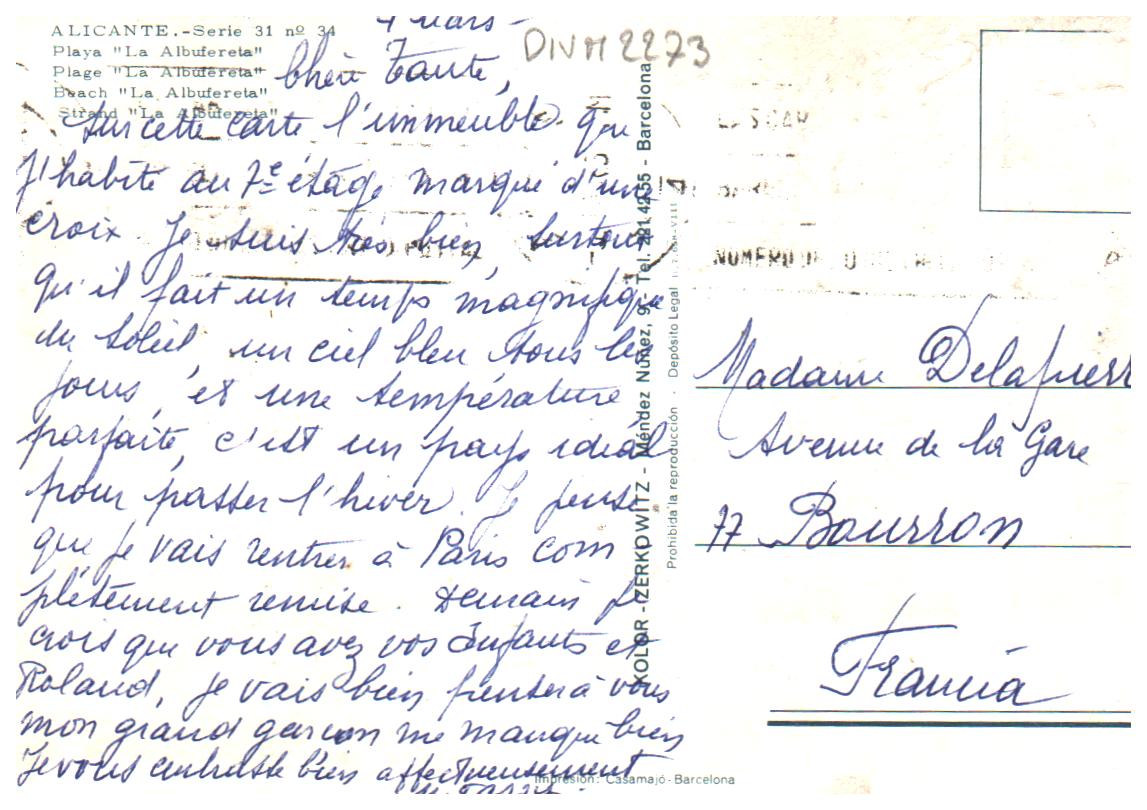 ALICANTE.-Serie 31 nº 34
Playa "La Albufereta"
Plage "La Albufereta"
Beach "La Albufereta"
Strand "La Albufereta"
4 mars -
DIVM 2273
Chère Tante,
Sur cette carte l'immeuble que
j'habite au 7e étage marqué d'une
croix. Je suis très bien, surtout
qu'il fait un temps magnifique
du soleil, un ciel bleu tous les
jours, et une température
parfaite, c'est un pays idéal
pour passer l'hiver. Je pense
que je vais rentrer à Paris com
plètement remise. Demain je
crois que vous avez vos enfants et
Roland, je vais bien penser à vous
mon grand garçon me manque bien
Je vous embrasse bien affectueusement
KOLOR-ZERKOWITZ - Méndez Núñez, 9 - Tel. 221 4255 - Barcelona
Prohibida la reproducción · Depósito Legal
NUMERO
Madame Delapierr
Avenue de la Gare
77 Bourron
Francia
Impresión: Casamajó-Barcelona